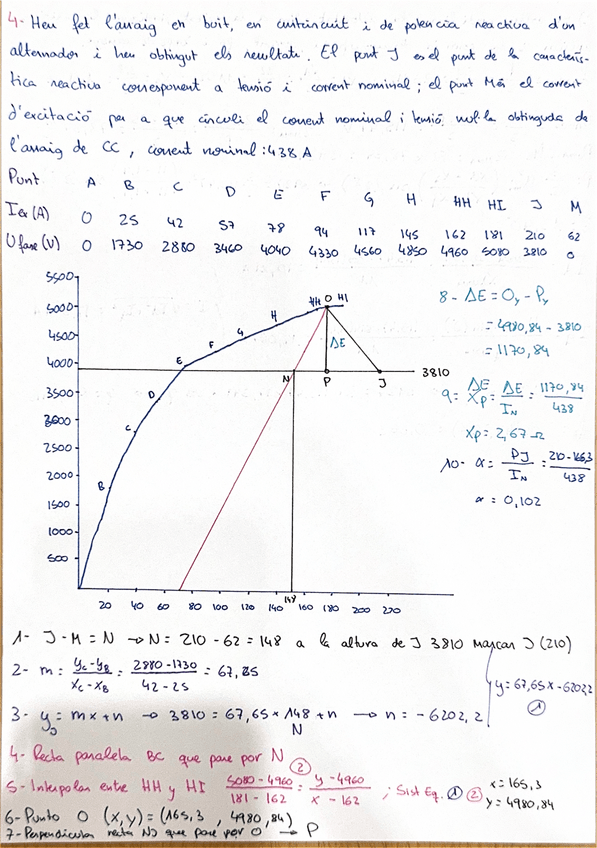 4- Heu fet l'assaig en buit, en curtcircuit i de potència reactiva d'un
alternador i heu obtingut els resultats. El punt J es el punt de la caracterís-
tica reactiva corresponent a tensió i corrent nominal; el punt M és el corrent
d'excitació per a que circuli el corrent nominal i tensió nul·la obtinguda de
l'assaig de CC, corrent nominal: 438 A
Punt A B C D E F G H HH HI J M
Iex (A) 0 25 42 57 78 94 117 145 162 181 210 62
Ufase (V) 0 1730 2880 3460 4040 4330 4560 4850 4960 5080 3810 0
5500
5000
4500
4000
3500
3000
2500
2000
1500
1000
500
B C D E F G H HH O HI
ΔE
N P J 3810
148
20 40 60 80 100 120 140 160 180 200 220
8- ΔE = Oy - Py
= 4980,84 - 3810
= 1170,84
9= Xp = ΔE / IN = 1170,84 / 438
Xp = 2,67 Ω
10- α = PJ / IN = 210-165,3 / 438
α = 0,102
1- J - M = N → N = 210 - 62 = 148 a la altura de J 3810 marcar J (210)
2- m = yC-yB / xC-xB = 2880-1730 / 42-25 = 67,65
y = 67,65x - 6202,2 ①
3- yJ = mx + n → 3810 = 67,65 * 148 + n → n = -6202,2
N
4- Recta paralela BC que pase por N
5- Interpolar entre HH y HI 5080-4960 / 181-162 = y-4960 / x-162 ② ; Sist Eq. ① ② x = 165,3
y = 4980,84
6- Punto O (x,y) = (165,3 , 4980,84)
7- Perpendicular recta NJ que pase por O → P